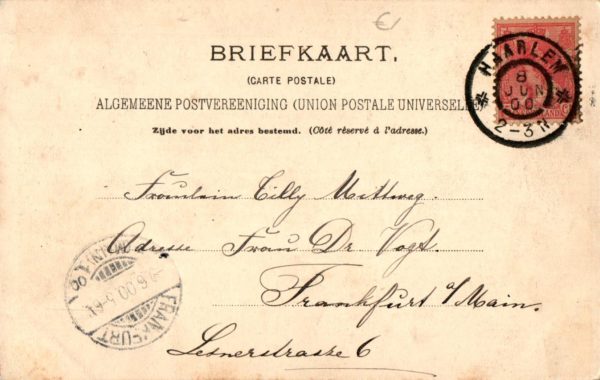 BRIEFKAART.
(CARTE POSTALE)
ALGEMEENE POSTVEREENIGING (UNION POSTALE UNIVERSELLE
Zijde voor het adres bestemd. (Côté réservé à l'adresse.)
HAARLEM
8
JUN
00
2-3 N
Fräulein Cilly Mittweg.
Adresse Frau Dr Vogt.
Frankfurt a/Main.
Lesnerstrasse 6
FRANKFURT